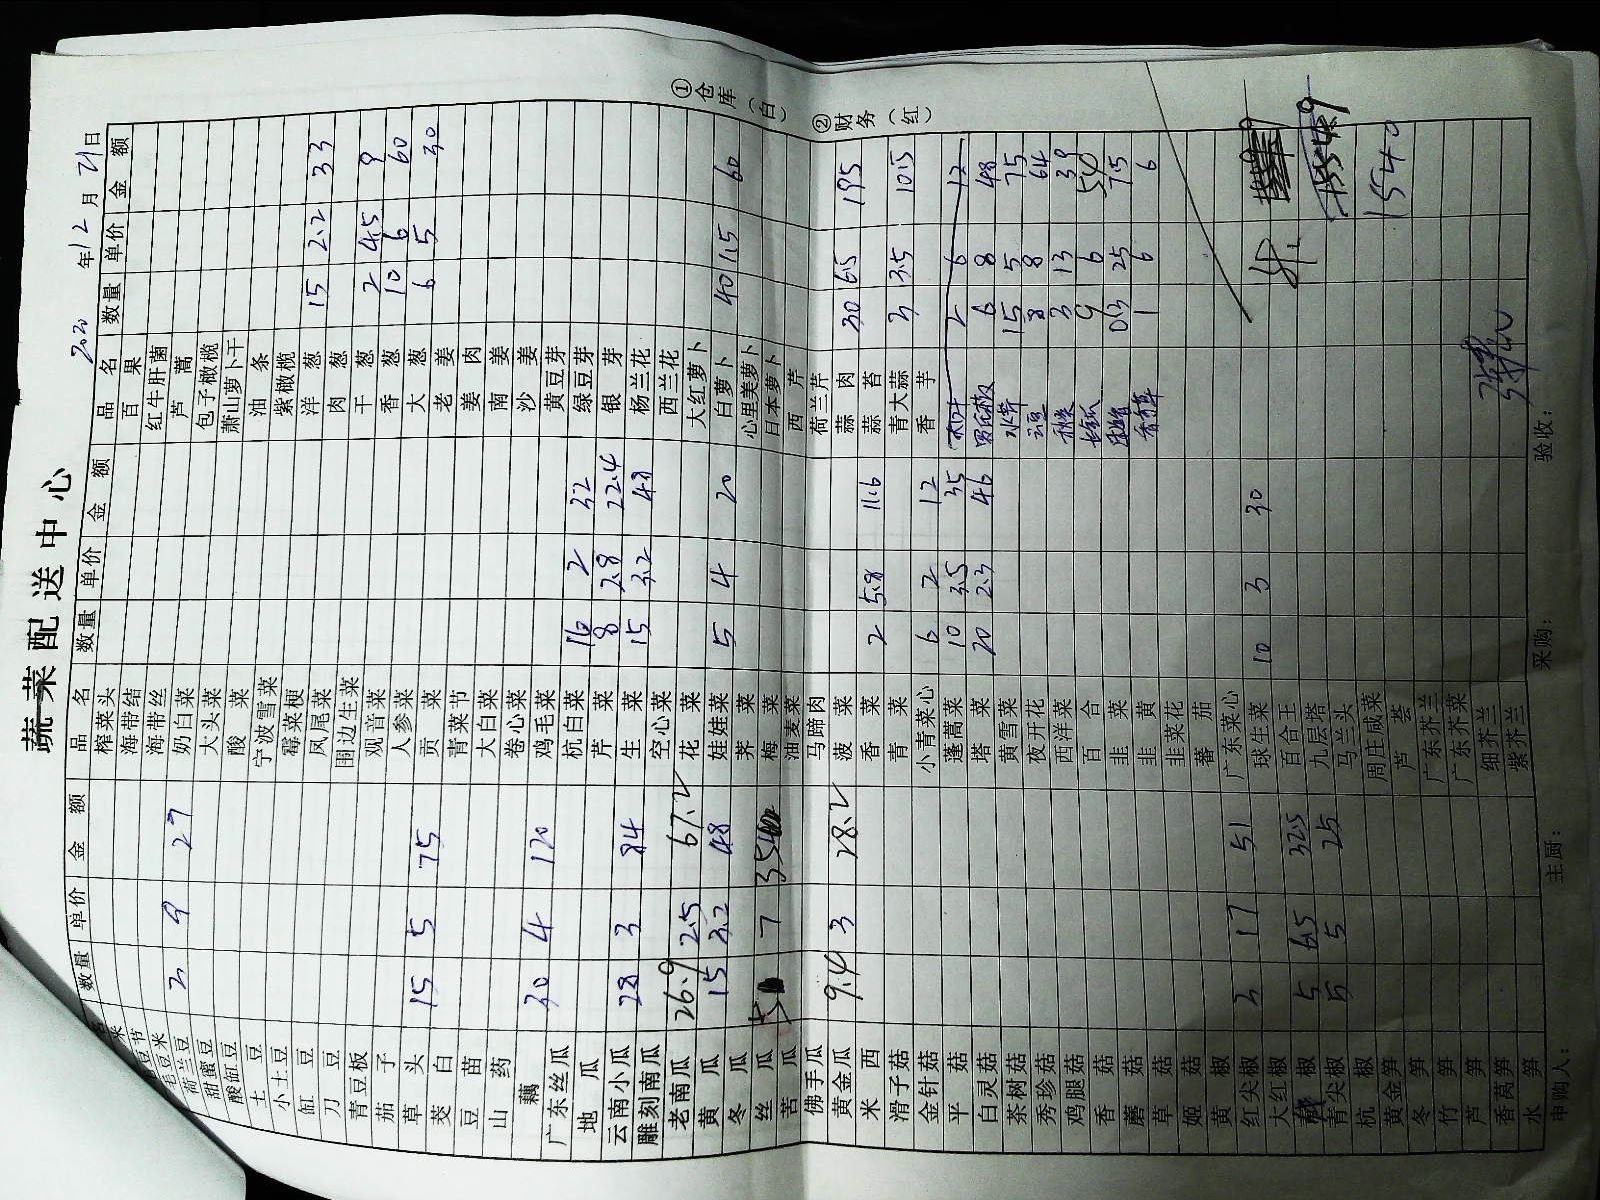 蔬菜配送中心
2020年12月21日
品名 数量 单价 金额 品名 数量 单价 金额 品名 数量 单价 金额
毛豆米
荷兰豆 2 9 27
甜蜜豆
酸缸豆
土豆
小土豆
缸豆
刀豆
青豆板
茄子
草头 15 5 75
茭白
豆苗
山药
藕 30 4 120
广东丝瓜
地瓜
云南小瓜 28 3 84
雕刻南瓜
老南瓜 26.9 2.5 67.2
黄瓜 15 3.2 48
冬瓜
丝瓜 5 7 35
苦瓜
佛手瓜
黄金瓜 9.4 3 28.2
米西
滑子菇
金针菇
平菇
白灵菇
茶树菇
秀珍菇
鸡腿菇
香菇
蘑菇
草菇
姬菇
黄椒
红尖椒 3 17 51
大红椒
椒 5 6.5 32.5
青尖椒 5 5 25
杭椒
黄金笋
冬笋
竹笋
芦笋
香莴笋
水笋
榨菜头
海带结
海带丝
奶白菜
大头菜
酸菜
宁波雪菜
霉菜梗
凤尾菜
围边生菜
观音菜
人参菜
贡菜
青菜节
大白菜
卷心菜
鸡毛菜
杭白菜 16 2 32
芹菜 8 2.8 22.4
生菜 15 3.2 48
空心菜
花菜
娃娃菜 5 4 20
荠菜
梅菜
油麦菜
马蹄肉
菠菜
香菜 2 5.8 11.6
青菜
小青菜心 6 2 12
蓬蒿菜 10 3.5 35
塔菜 20 2.3 46
黄雪菜
夜开花
西洋菜
百合
韭菜
韭黄
韭菜花
蕃茄
广东菜心
球生菜 10 3 30
百合王
九层塔
马兰头
周庄咸菜
芦荟
广东芥兰
广东芥菜
细芥兰
紫芥兰
百果
红牛肝菌
芦蒿
包子橄榄
萧山萝卜干
油条
紫橄榄
洋葱 15 2.2 33
肉葱
干葱 2 4.5 9
香葱 10 6 60
大葱 6 5 30
老姜
姜肉
南姜
沙姜
黄豆芽
绿豆芽
银芽
杨兰花
西兰花
大红萝卜
白萝卜 40 1.5 60
心里美萝卜
日本萝卜
西芹
荷兰芹
蒜肉 30 6.5 195
蒜苔
青大蒜 3 3.5 10.5
香芋
2 6 12
6 8 48
水芹 15 5 75
8 8 64
3 13 39
9 6 54
0.3 25 7.5
1 6 6
1540
①仓库(白) ②财务(红)
申购人: 主厨: 采购: 验收: